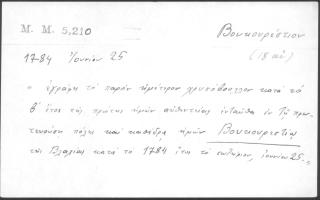 Μ. Μ. 5,210
Βουκουρέστιον
1784 Ἰουνίου 25
(18 αἰ)
" ἐγράφη τὸ παρὸν ἡμέτερον χρυσόβουλλον κατὰ τὸ
β´ ἔτος τῆς πρώτης ἡμῶν αὐθεντείας ἐνταῦθα ἐν τῇ πρω-
τευούσῃ πόλει καὶ καθέδρᾳ ἡμῶν Βουκουρεστίῳ
τῆς Βλαχίας κατὰ τὸ 1784 ἔτος τὸ σωτήριον, ἰουνίου 25 -"